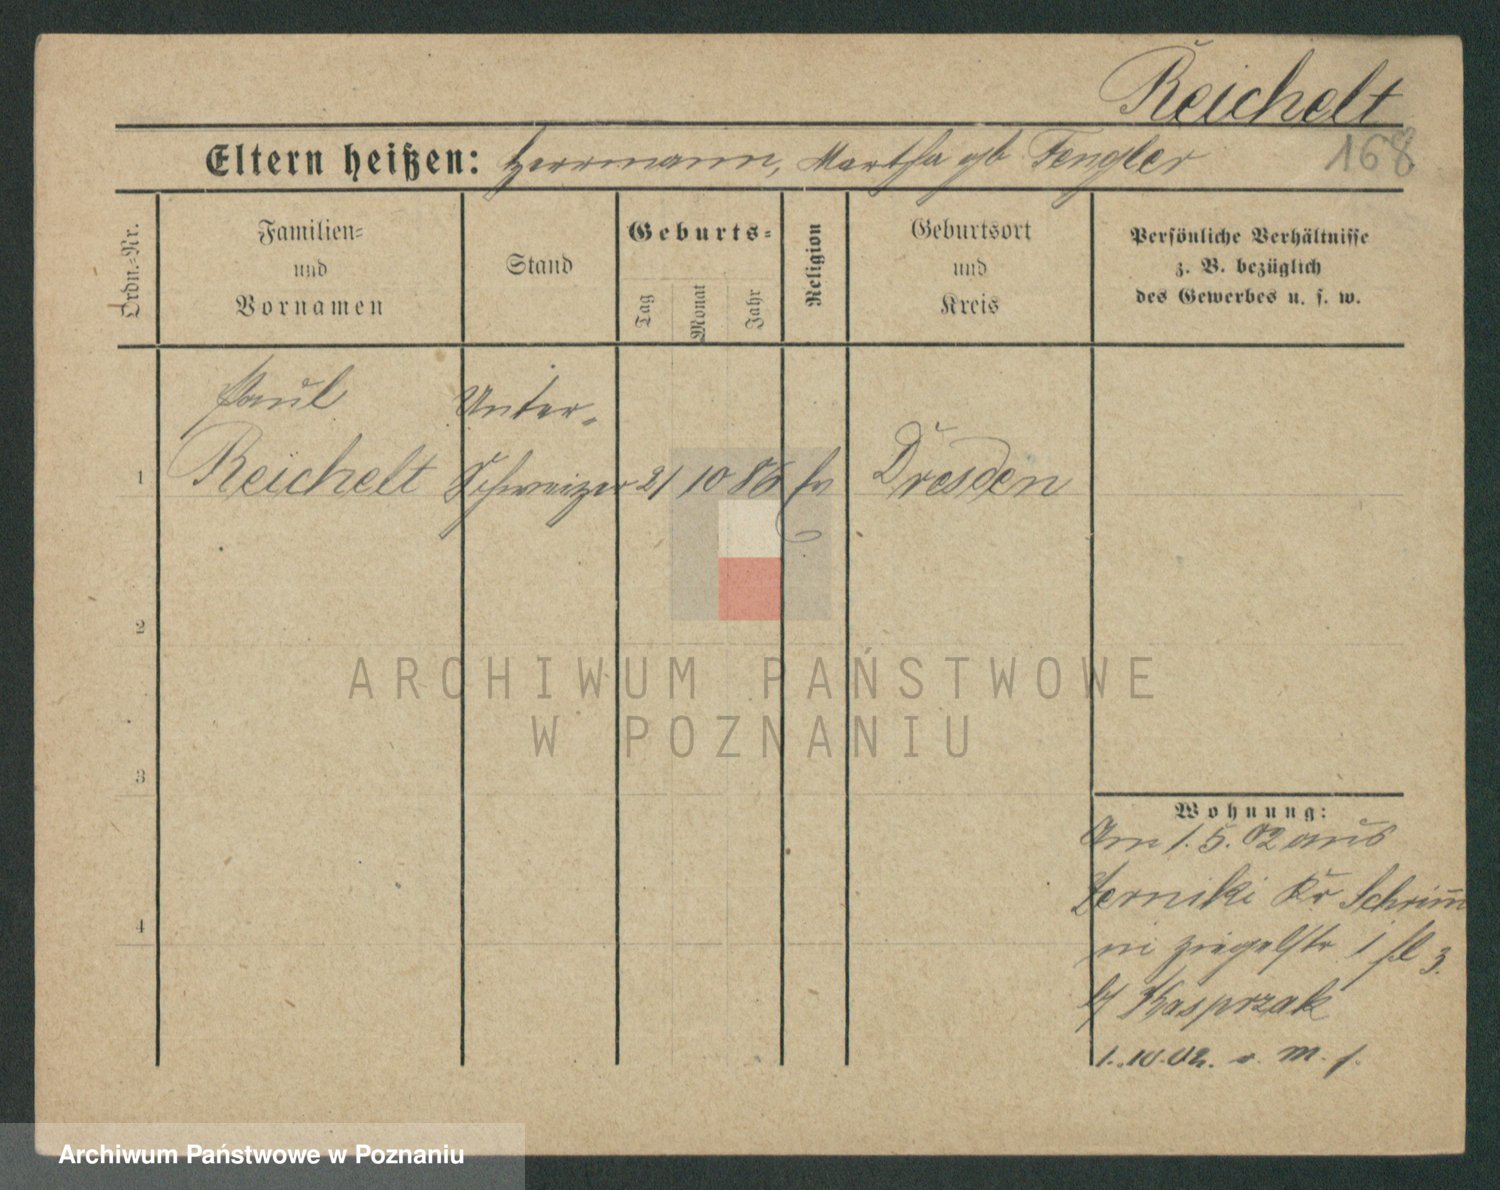 Reichelt
168
Eltern heißen: Herrmann, Martha gb Fengler
Ordn.=Nr.
Familien=
und
Vornamen
Stand
Geburts=
Tag
Monat
Jahr
Religion
Geburtsort
und
Kreis
Persönliche Verhältnisse
z. B. bezüglich
des Gewerbes u. s. w.
Paul Unter-
1 Reichelt Schweizer 21 10 86 ev Dresden
2
ARCHIWUM PAŃSTWOWE
W POZNANIU
3
Wohnung:
Am 1. 5. 02 aus
Zerniki Kr Schrim̅
in Ziegelstr 1 fl 3.
4
b/ Kasprzak
1. 10. 02.
Archiwum Państwowe w Poznaniu